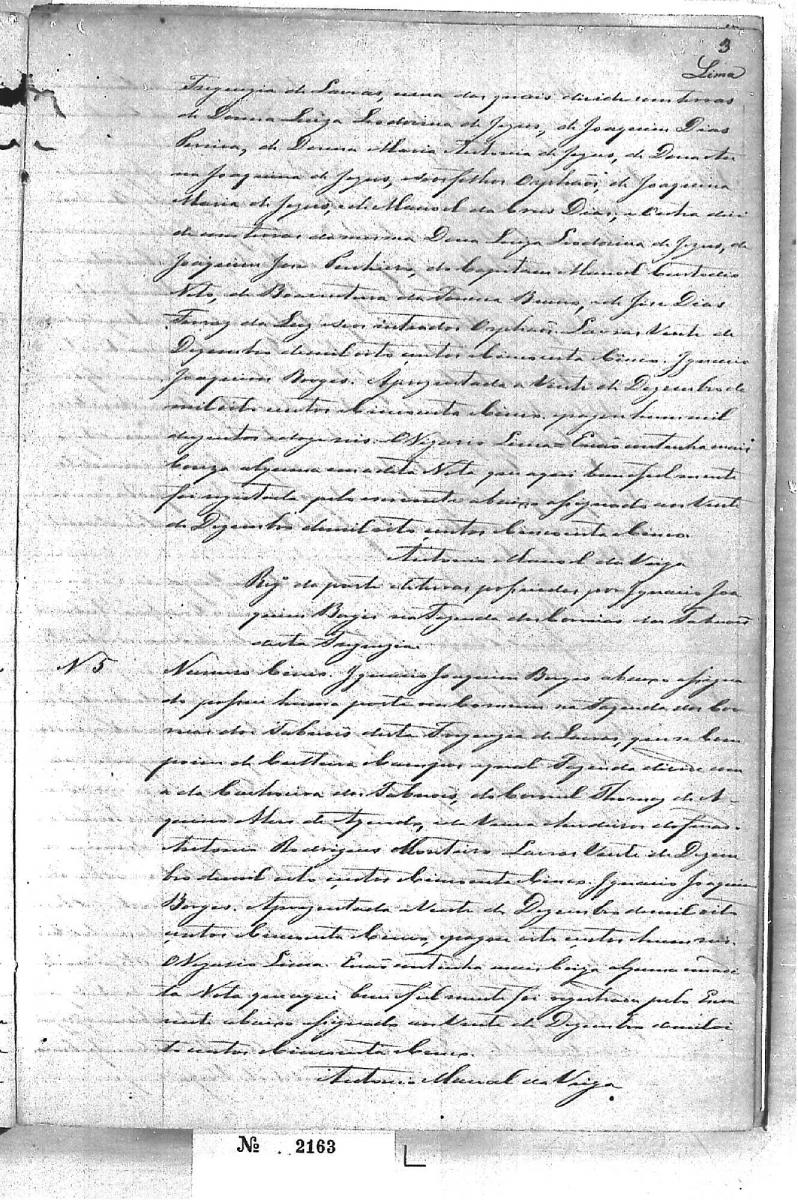 3
Lima
Freguezia de Lavras, uma das quais divide com terras
de Donna Luiza Leodorina de Jezus, de Joaquim Dias
Pereira, de Donna Maria Antonia de Jezus, de Donna
Joaquina de Jezus, seos filhos Orphãos, de Joaquina
Maria de Jezus, e de Manoel da Crus Dias, a Outra divi
de com terras da mesma Dona Luiza Leodorina de Jezus, de
Joaquim José Pinheiro, do Capitam Manoel Custodio
Neto, de Boaventura da Bueno, e de José Dias
Ferraz da Luz seos Orphãos. Lavras Vinte de
Dezembro de mil oito centos Cincoenta Cinco. Ignacio
Joaquim Borges. Aprezentada a Vinte de Dezembro de
mil oito centos Cincoenta Cinco, pagou hum mil
duzentos e doze reis. O Vigario Lima. E não continha mais
Couza alguma em a dita Nota que aqui bem fiel mente
foi registada pelo escrevente abaixo assignado aos Vinte
de Dezembro de mil oito centos Cincoenta Cinco.
Antonio Manoel da Veiga
Reg. da parte de terras possuidas por Ignacio Joa
quim Borges na Fazenda do Corrego dos Tabuães
desta Freguezia.
N 5
Numero Cinco. Ignacio Joaquim Borges abaixo assigna
do possue huma parte em Commum na Fazenda do Cor
rego dos Tabuães desta Freguezia de Lavras, que se Com
poem de Cultura Campos a qual Fazenda divide com
a da Caxoeira dos Tabuães, do Coronel Thomaz de A
quino Alves de Azevedo, e da Viuva e herdeiros do finado
Antonio Rodrigues Monteiro. Lavras Vinte de Dezem
bro de mil oito centos Cincoenta Cinco. Ignacio Joaquim
Borges. Aprezentada a Vinte de Dezembro de mil oito
centos Cincoenta Cinco, pagou oito centos hum reis.
O Vigario Lima. E não continha mais Couza alguma em a di
ta Nota que aqui bem fiel mente foi registrada pelo Escre
vente abaixo assignado aos Vinte de Dezembro de mil oi
to centos Cincoenta Cinco.
Antonio Manoel da Veiga
№ 2163